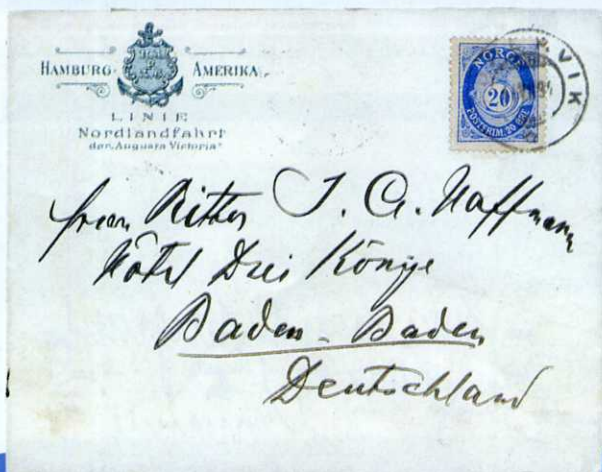 HAMBURG-AMERIKA
LINIE
Nordlandfahrt
der "Augusta Victoria"
NORGE
20
POSTFRIM. 20 ØRE
VIK
J. A.
Hôtel Drei Könige
Baden-Baden
Deutschland